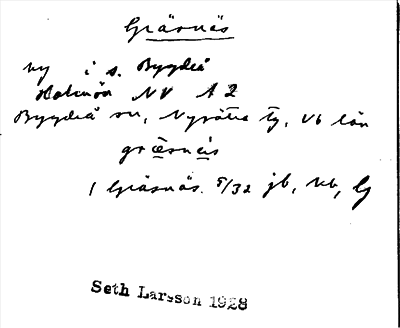 Gräsnäs
ny i s. Bygdeå
Holmön NV A2
Bygdeå sn, Nysätra tg, Vb län
græsnäs
1 Gräsnäs. 5/32 jb,
Seth Larsson 1928